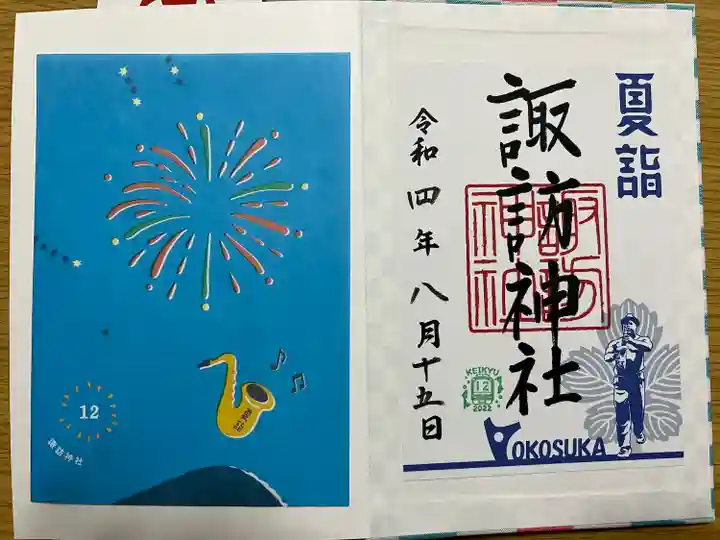 12
諏訪神社
夏詣
諏訪神社
諏訪
神社
令和四年八月十五日
KEIKYU
12
2022
YOKOSUKA